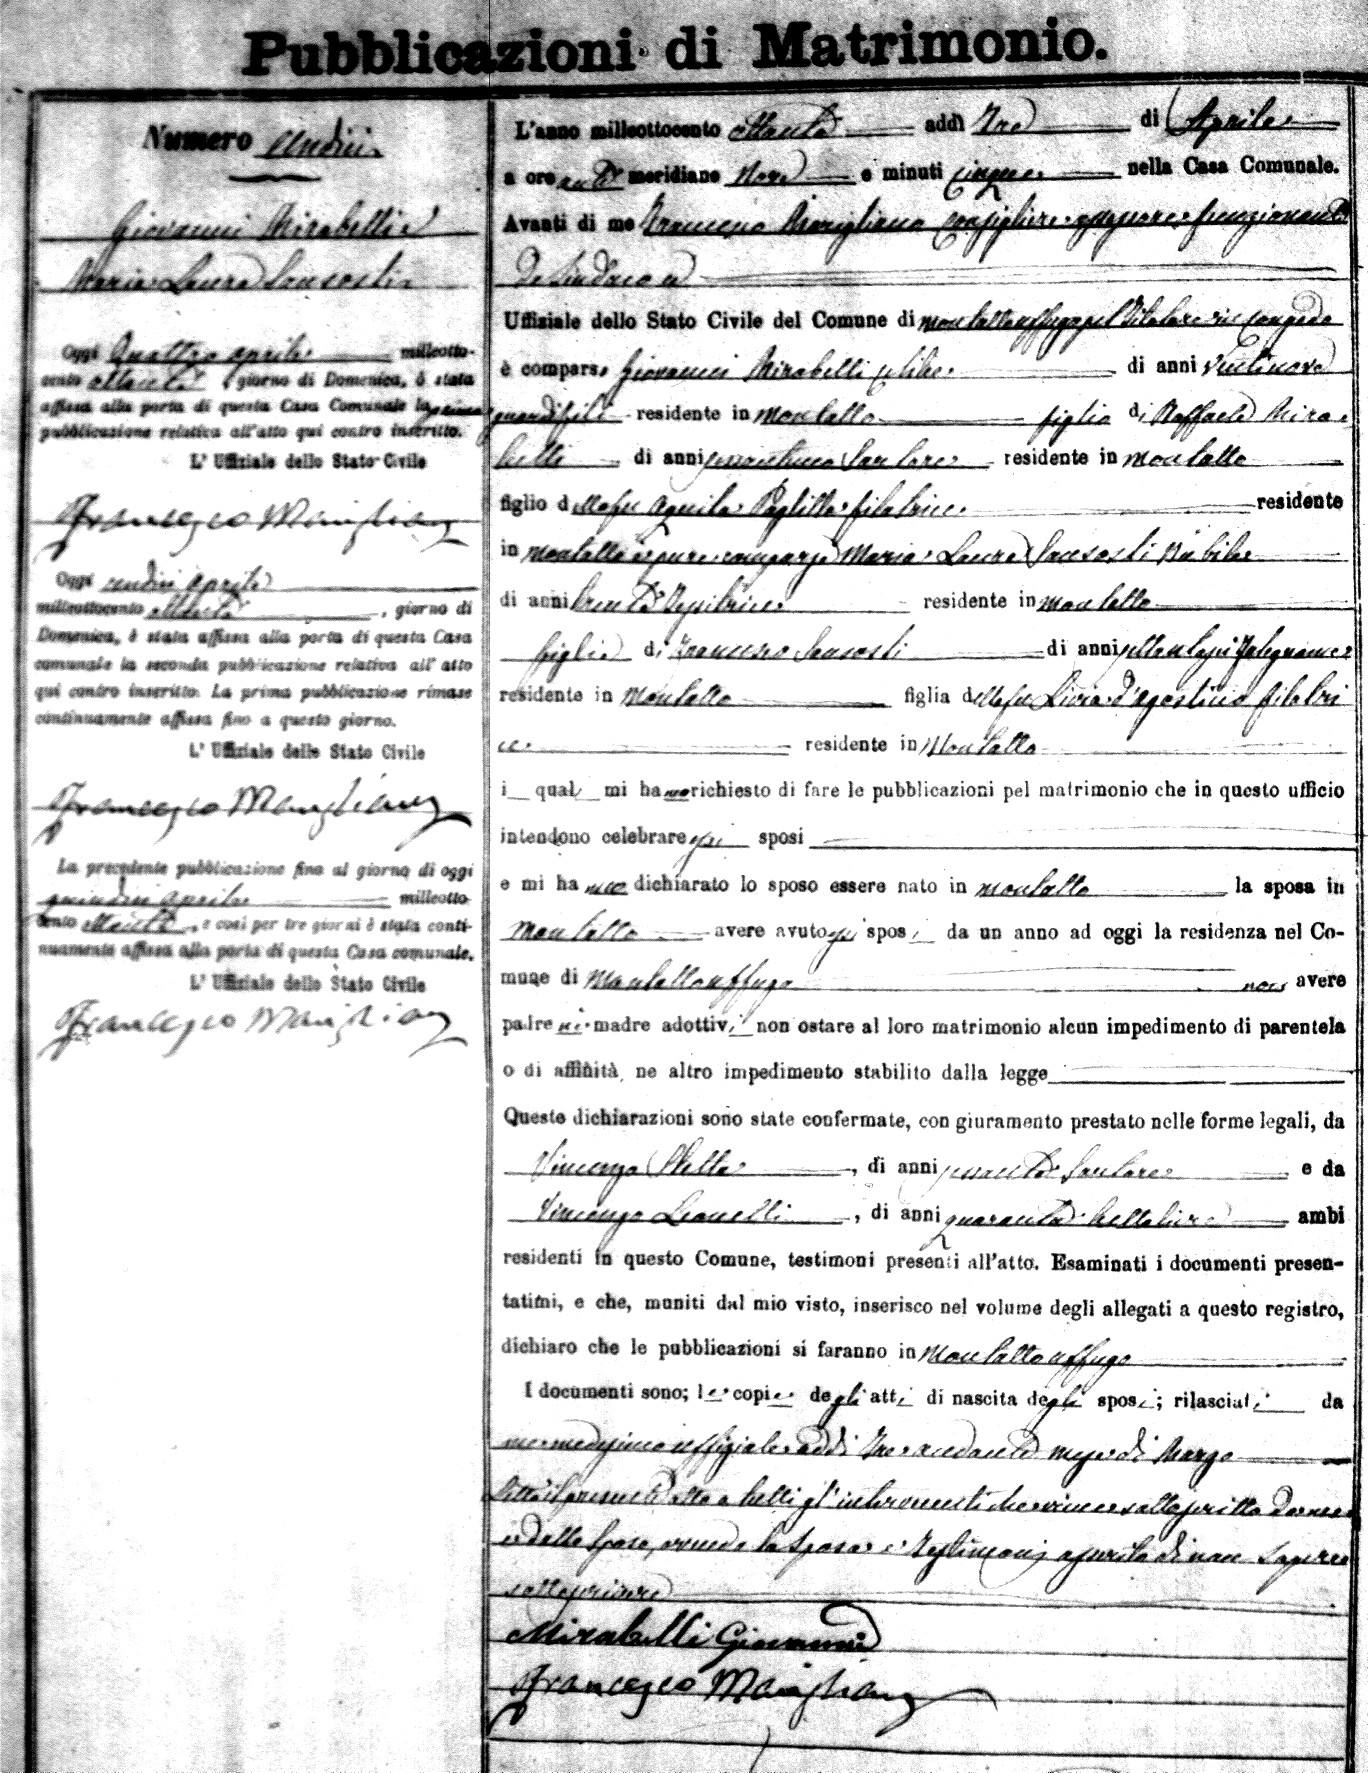 Pubblicazioni di Matrimonio.
Numero undici
Giovanni Mirabelli e
Maria Laura Sansosti
Oggi Quattro aprile milleotto-
cento ottanta giorno di Domenica, è stata
affissa alla porta di questa Casa Comunale la prima
pubblicazione relativa all'atto qui contro inscritto.
L'Uffiziale dello Stato Civile
Francesco Marigliano
Oggi undici aprile
milleottocento ottanta, giorno di
Domenica, è stata affissa alla porta di questa Casa
comunale la seconda pubblicazione relativa all'atto
qui contro inscritto. La prima pubblicazione rimase
continuamente affissa fino a questo giorno.
L'Uffiziale dello Stato Civile
Francesco Marigliano
La precedente pubblicazione fino al giorno di oggi
quindici aprile milleotto
cento ottanta, e così per tre giorni è stata conti-
nuamente affissa alla porta di questa Casa comunale.
L'Uffiziale dello Stato Civile
Francesco Marigliano
L'anno milleottocento ottanta addì Tre di Aprile
a ore anti meridiane Nove e minuti cinque nella Casa Comunale.
Avanti di me Francesco Marigliano Consigliere assessore funzionante
da Sindaco
Uffiziale dello Stato Civile del Comune di Montaltouffugo pel titolare in congedo
è comparso Giovanni Mirabelli celibe di anni ventinove
residente in Montalto figlio di Raffaele Mira
belli di anni sessantuno Sartore residente in Montalto
figlio della fu Aquila filatrice residente
in Montalto è pure comparsa Maria Laura Sansosti Nubile
di anni trenta Tessitrice residente in Montalto
figlia di Francesco Sansosti di anni settantasei Falegname
residente in Montalto figlia della fu Livia d'Agostino filatri
ce residente in Montalto
i quali mi hanno richiesto di fare le pubblicazioni pel matrimonio che in questo ufficio
intendono celebrare essi sposi
e mi hanno dichiarato lo sposo essere nato in Montalto la sposa in
Montalto avere avuto essi sposi da un anno ad oggi la residenza nel Co-
mune di Montaltouffugo non avere
padre nè madre adottivi non ostare al loro matrimonio alcun impedimento di parentela
o di affinità, ne altro impedimento stabilito dalla legge
Queste dichiarazioni sono state confermate, con giuramento prestato nelle forme legali, da
Vincenzo Stella, di anni sessanta Sartore e da
Vincenzo Leonetti, di anni quaranta bettoliere ambi
residenti in questo Comune, testimoni presenti all'atto. Esaminati i documenti presen-
tatimi, e che, muniti dal mio visto, inserisco nel volume degli allegati a questo registro,
dichiaro che le pubblicazioni si faranno in Montaltouffugo
I documenti sono; le copie degli atti di nascita degli sposi; rilasciati da
me medesimo uffiziale addì Tre andante mese di Marzo
Letto il presente atto a tutti gl'intervenuti che viene sottoscritto da me
e dallo sposo, avendo la sposa e testimoni asserito di non sapere
sottoscrivere
Mirabelli Giovanni
Francesco Marigliano